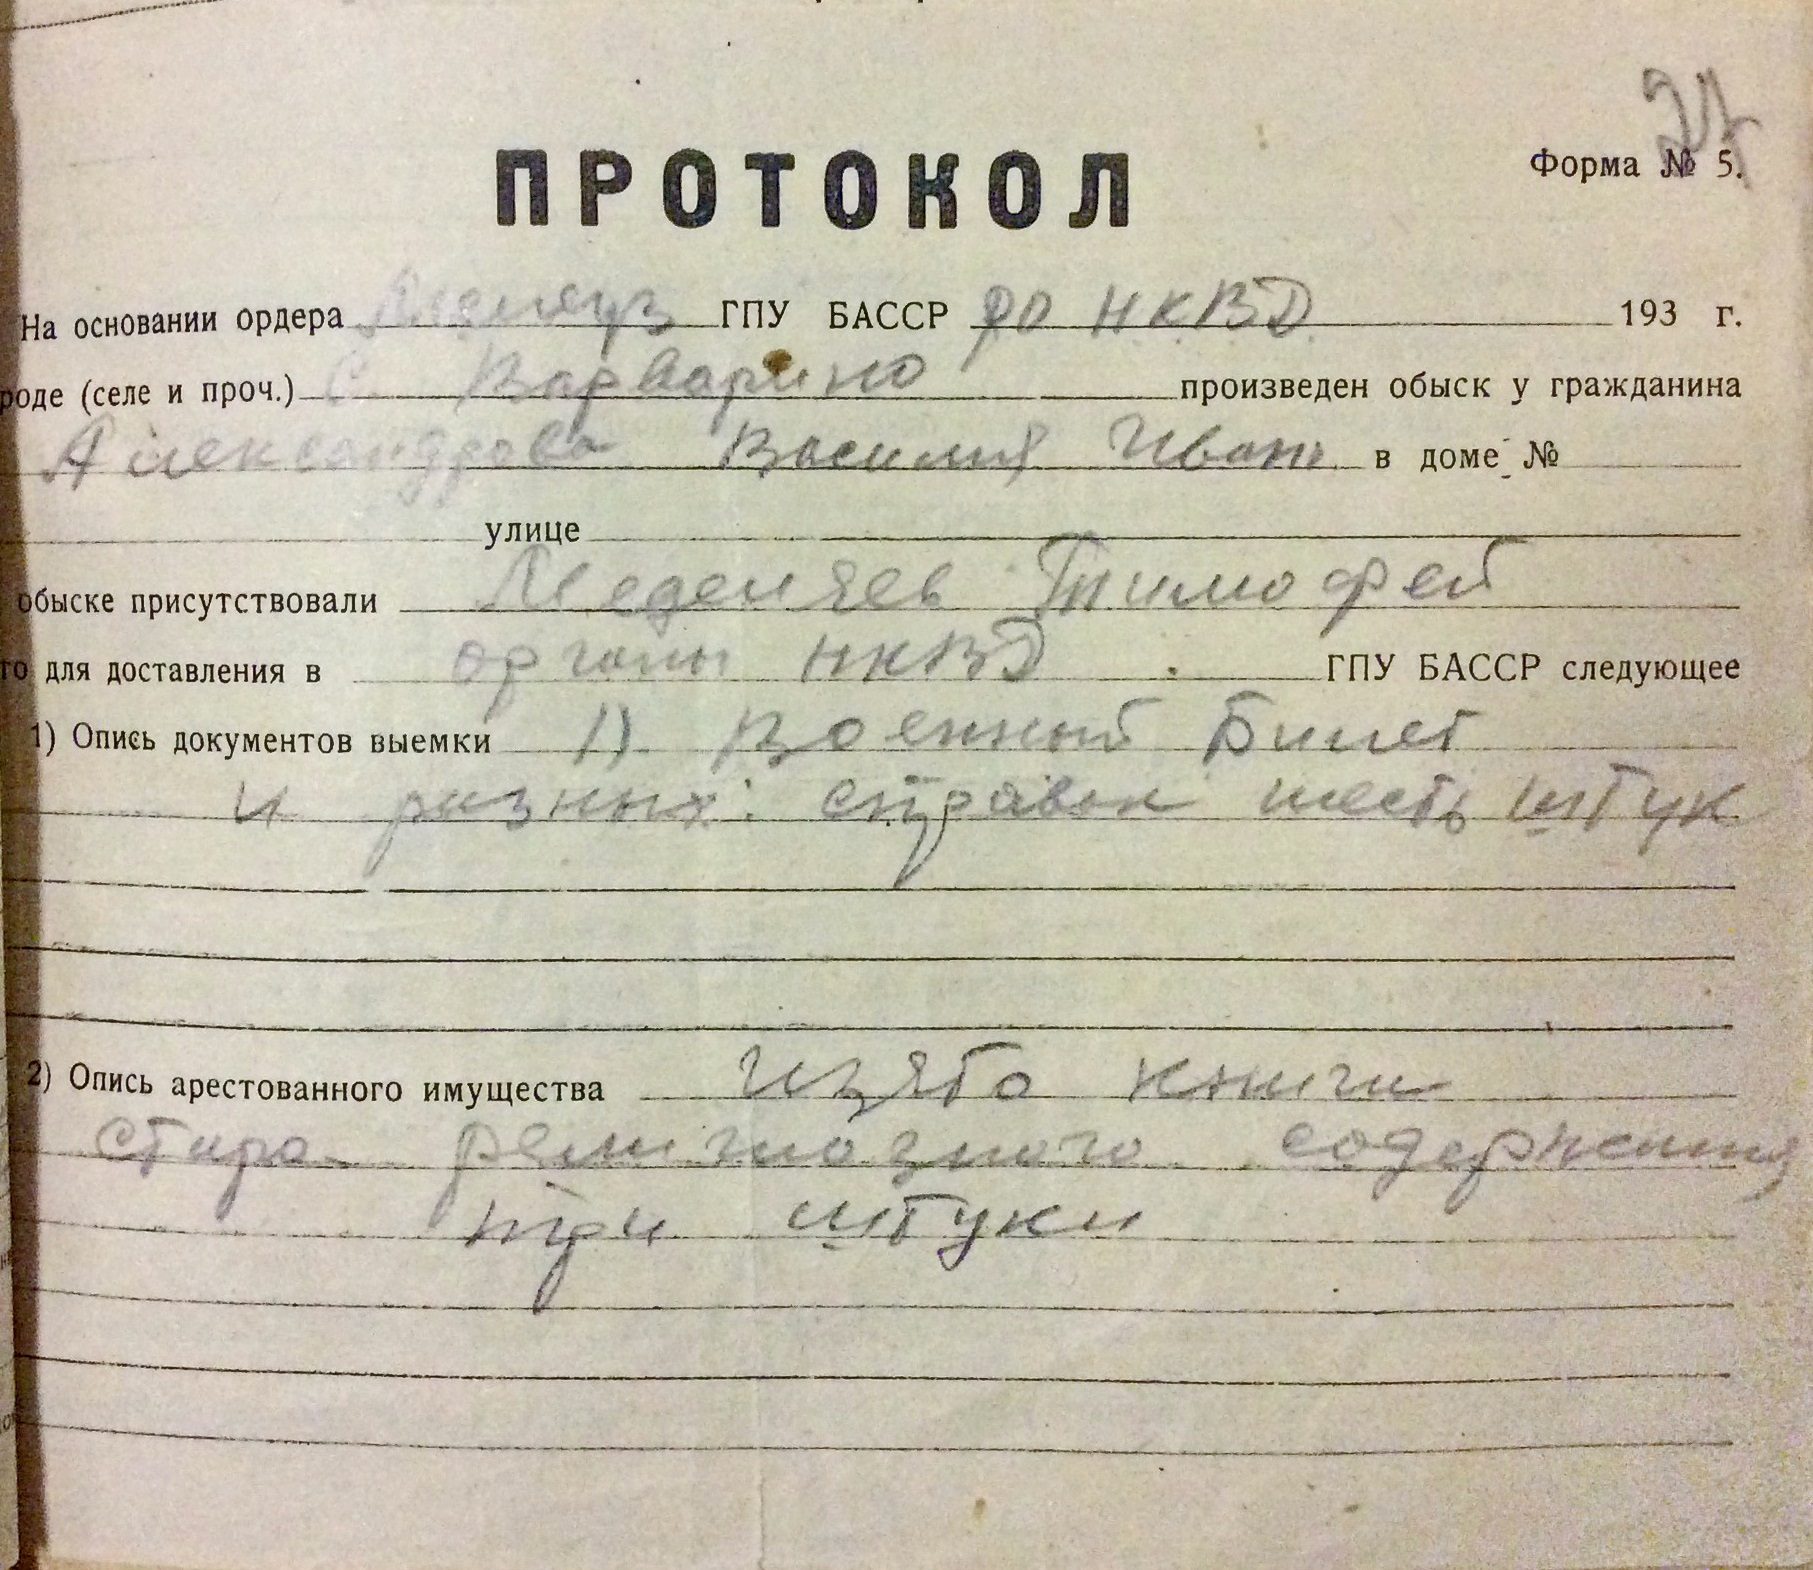 24
ПРОТОКОЛ
Форма № 5.
На основании ордера Мелеуз ГПУ БАССР РО НКВД 193 г.
роде (селе и проч.) С. Варварино произведен обыск у гражданина
Александрова Василия Иван в доме №
улице
обыске присутствовали Меделяев Тимофей
го для доставления в органы НКВД ГПУ БАССР следующее
1) Опись документов выемки 1) Военный Билет
и разных справок шесть штук
2) Опись арестованного имущества Изято книги
стара религиозного содержения
три штуки